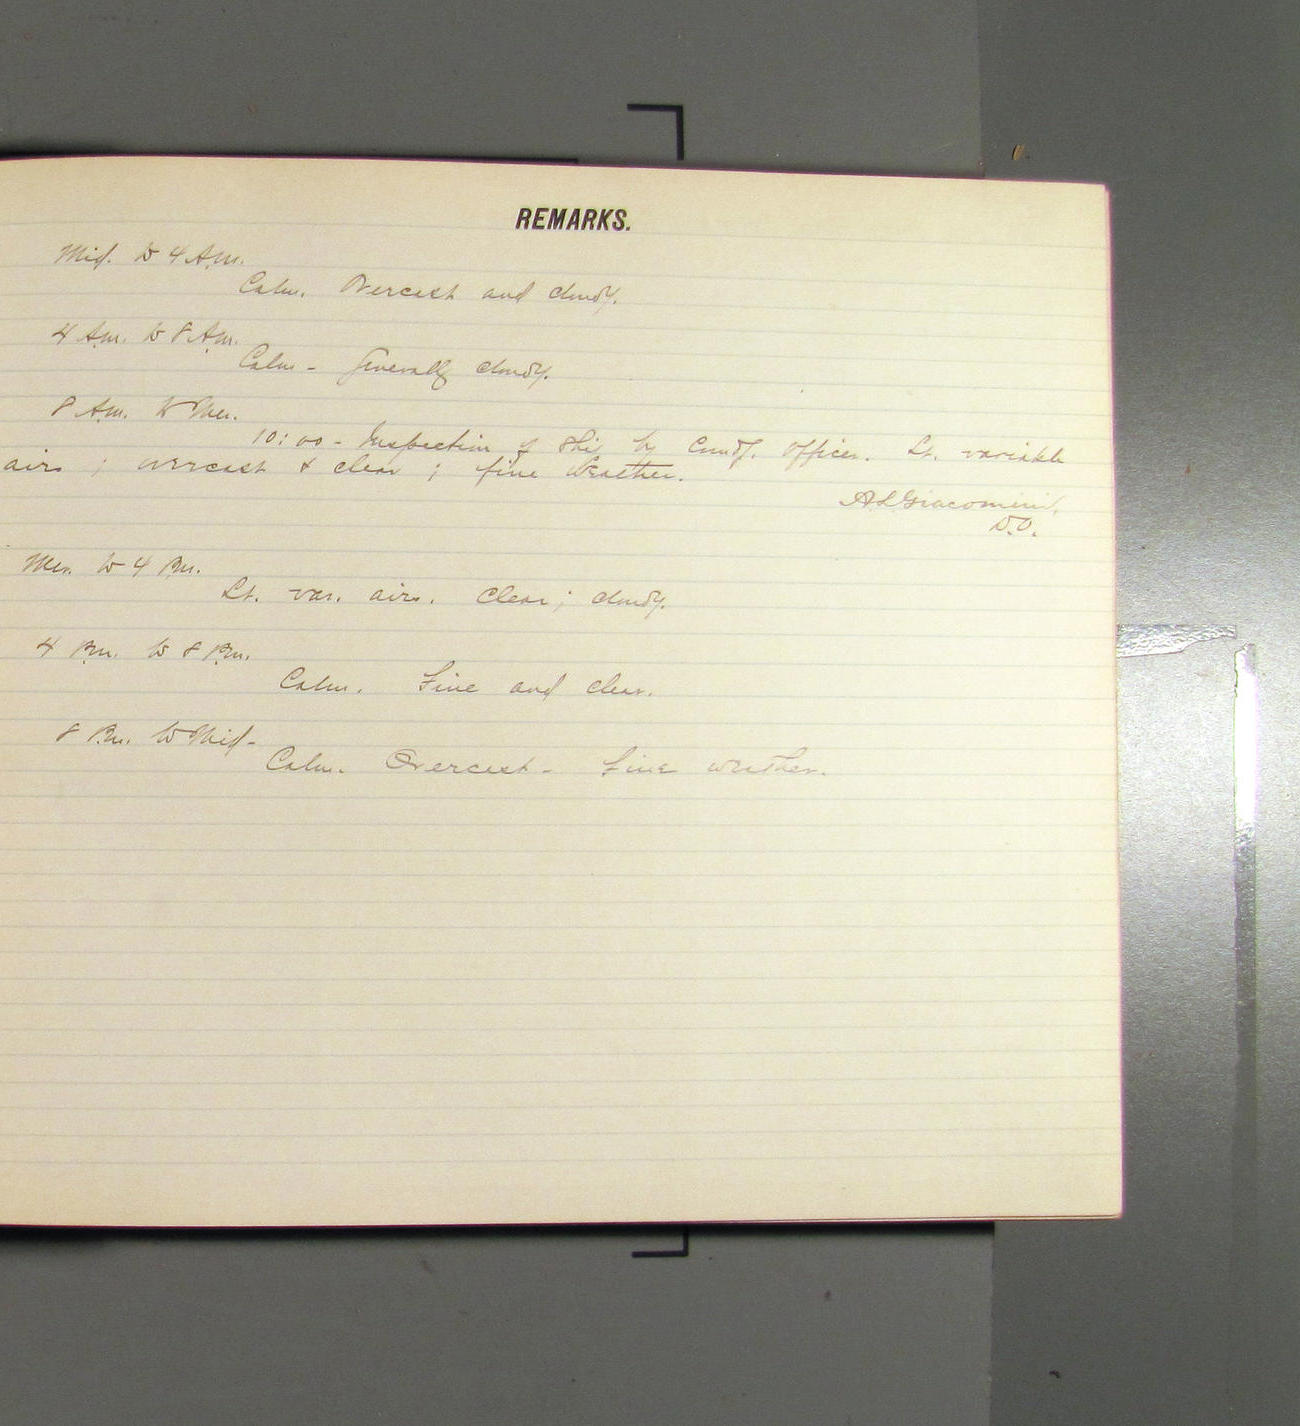 REMARKS.
Mid. to 4 A.m.
Calm. Overcast and cloudy.
4 A.m. to 8 A.m.
Calm - Generally cloudy.
8 A.m. to Mer.
10:00 - Inspection of ship by Comdg. Officer. Lt. variable
airs ; overcast & clear ; fine weather.
A L Giacomini.
D.O.
Mer. to 4 P.m.
Lt. var. airs. Clear ; cloudy.
4 P.m. to 8 P.m.
Calm. Fine and clear.
8 P.m. to Mid -
Calm. Overcast - Fine weather.